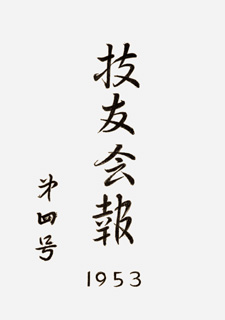 技友会報
第四号
1953